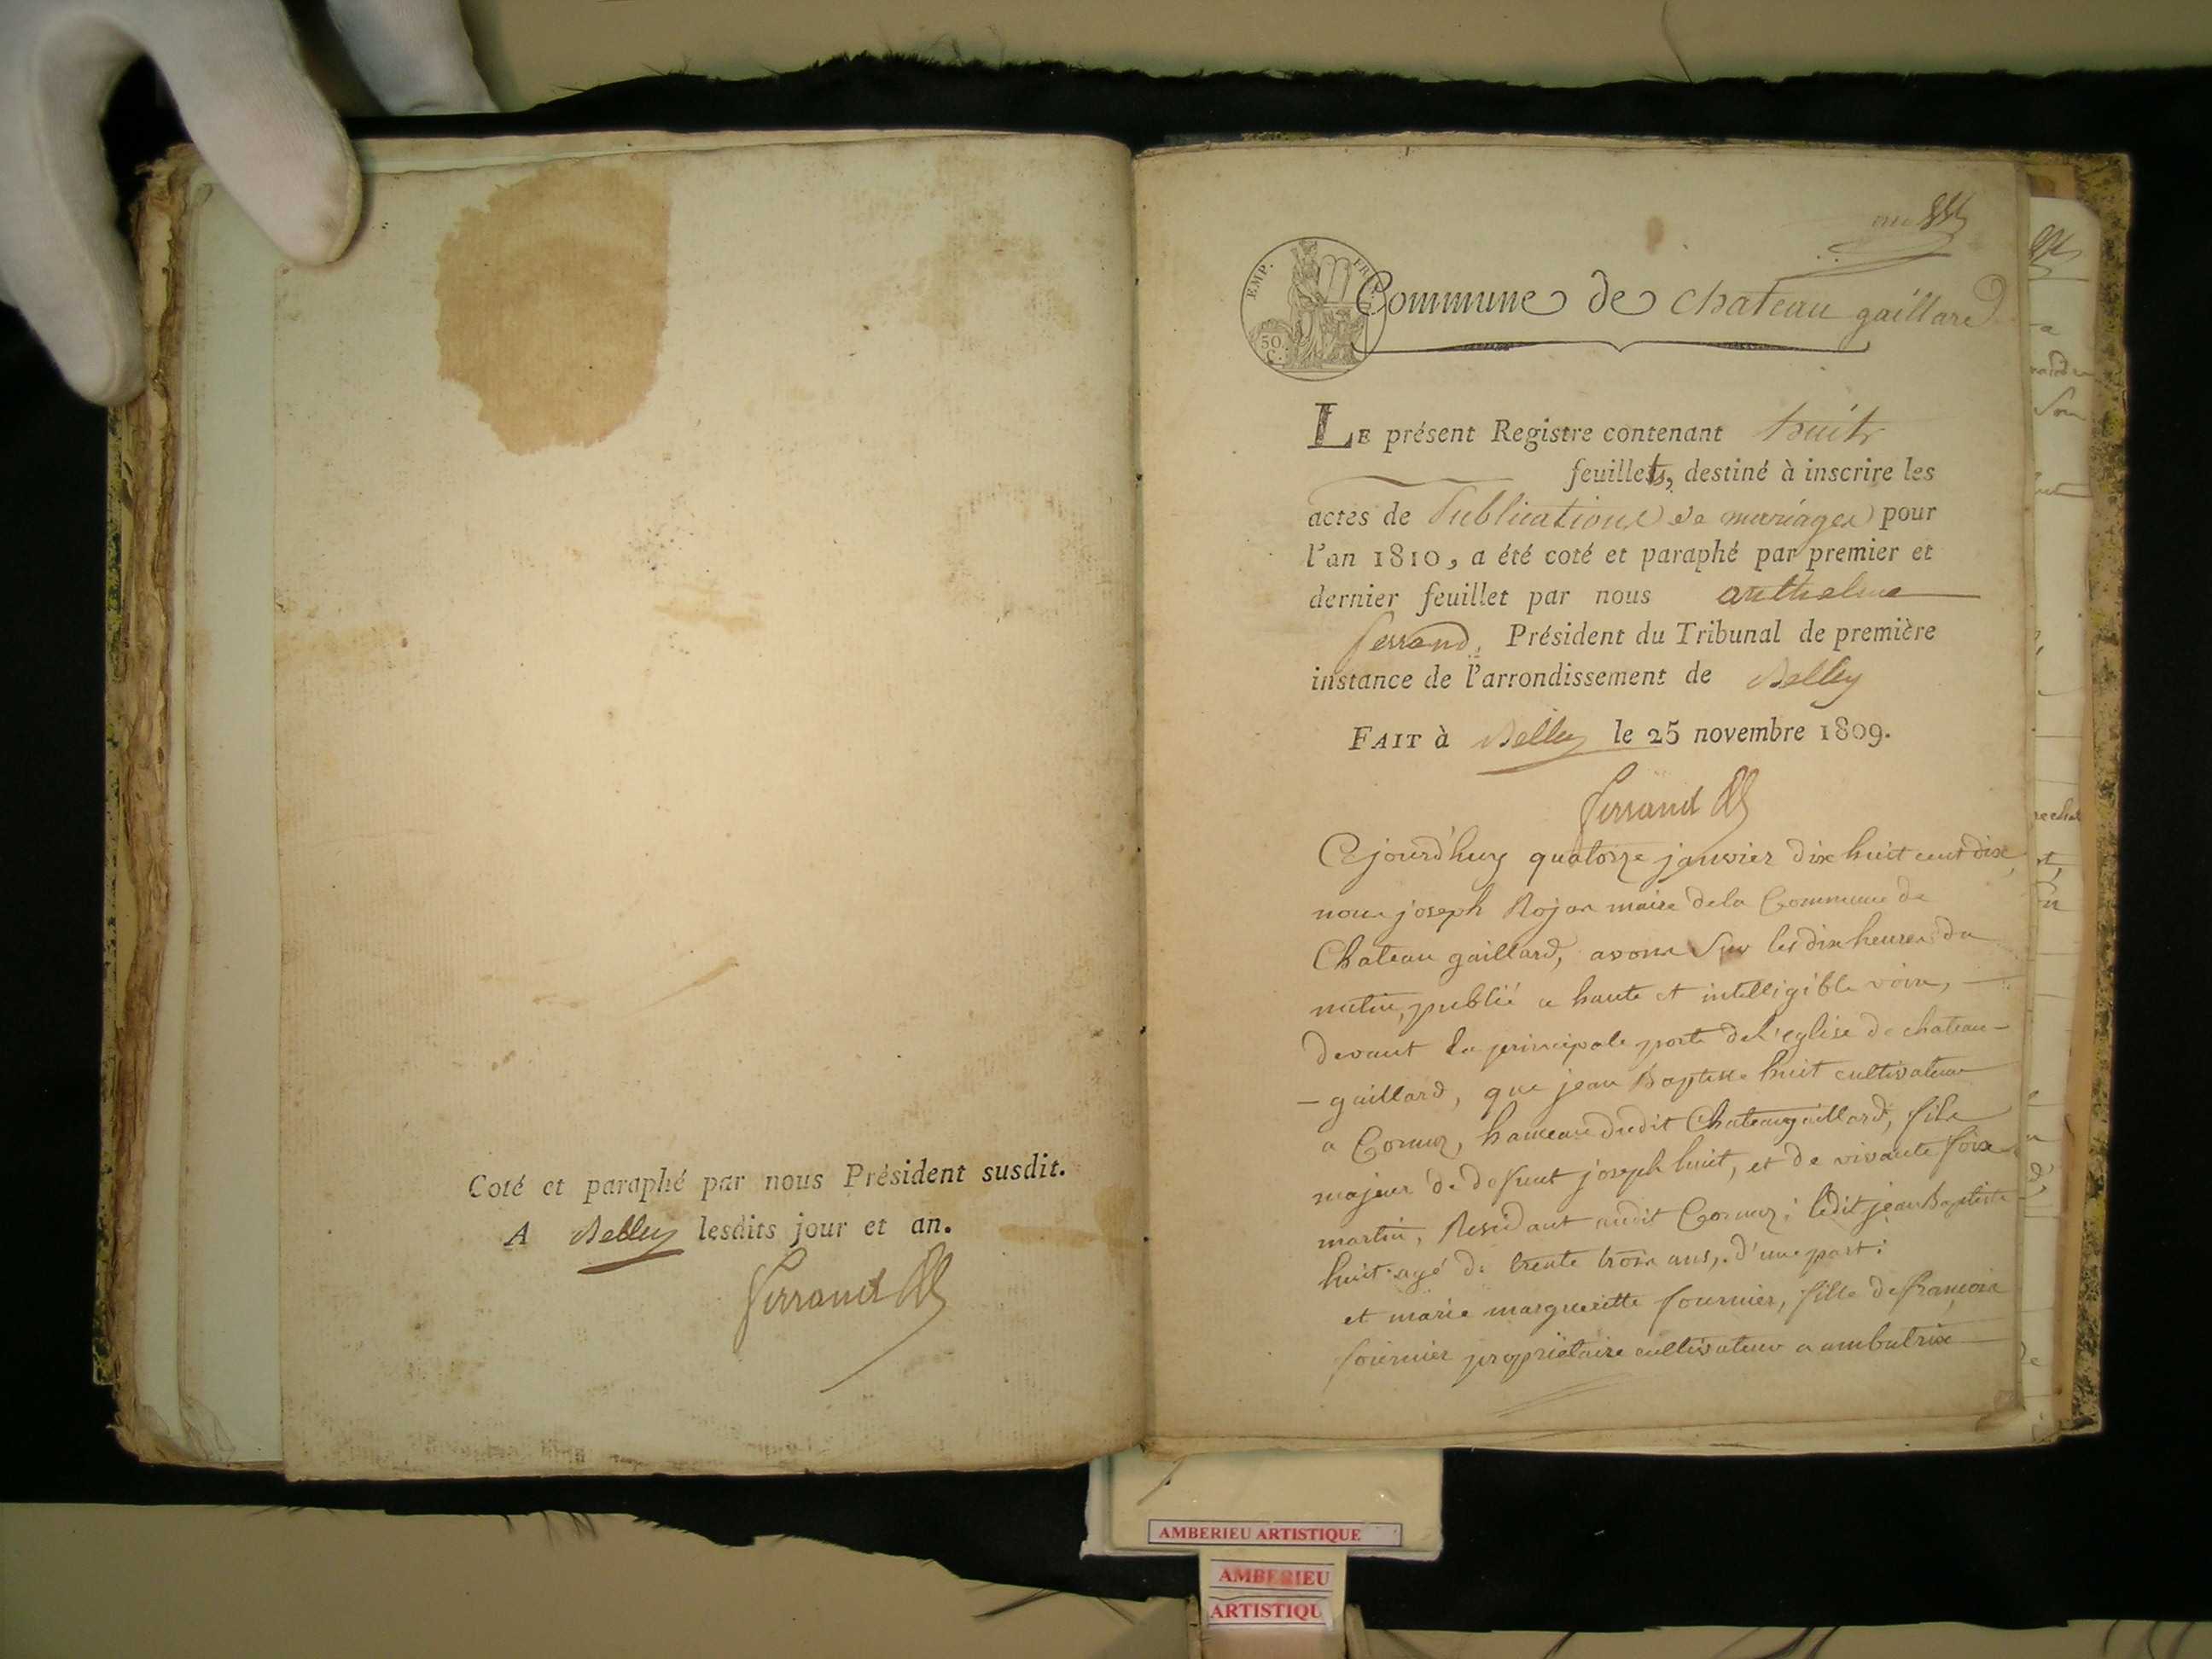 Coté et paraphé par nous Président susdit.
A Belley lesdits jour et an.
Ferrand
EMP. FR
50 C.
Commune de Chateau gaillard
LE présent Registre contenant huit
feuillets, destiné à inscrire les
actes de Publications de mariages pour
l'an 1810, a été coté et paraphé par premier et
dernier feuillet par nous anthelme
ferrand, Président du Tribunal de première
instance de l'arrondissement de Belley
FAIT à Belley le 25 novembre 1809.
Ferrand
Cejourd'huy quatorze janvier dix huit cent dix,
nous joseph Rojon maire dela Commune de
Chateau gaillard, avons Sur les dix heures du
matin, publié a haute et intelligible voix,
devant la principale porte del'eglise de chateau-
-gaillard, que jean Baptiste huit cultivateur
a Cormoz, hameau dudit Chateaugaillard, fils
majeur de defunt joseph huit, et de vivante
martin, Residant audit Cormoz; ledit jean Baptiste
huit agé de trente trois ans, d'une part:
et marie margueritte fournier, fille de françois
fournier propriétaire cultivateur a ambutrix
AMBERIEU ARTISTIQUE
AMBERIEU
ARTISTIQU